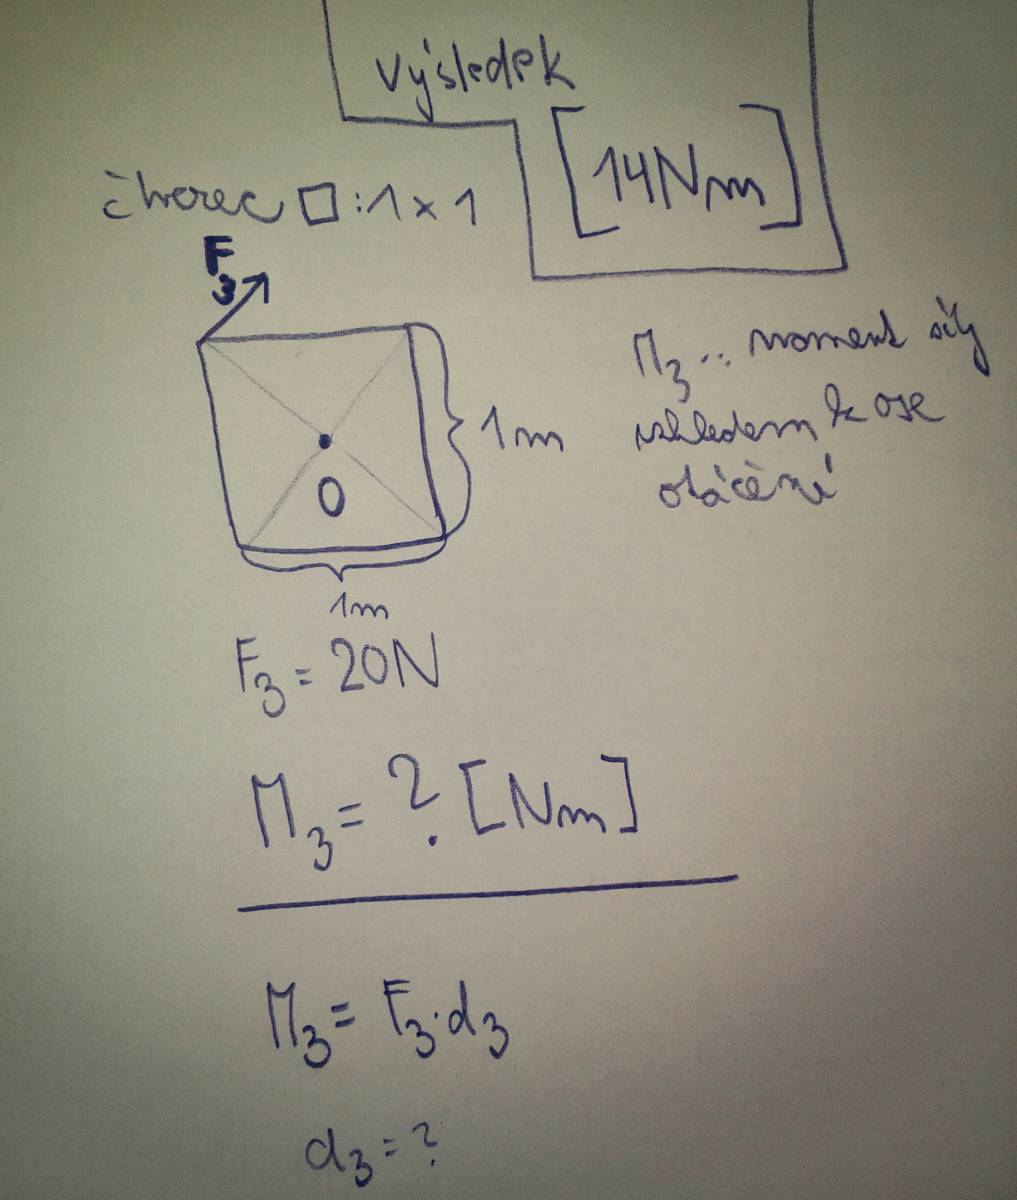 výsledek
[14Nm]
čtverec □:1×1
F₃
M₃... moment síly
vzhledem k ose
otáčení
1m
O
1m
F₃ = 20N
M₃ = ? [Nm]
M₃ = F₃·d₃
d₃ = ?